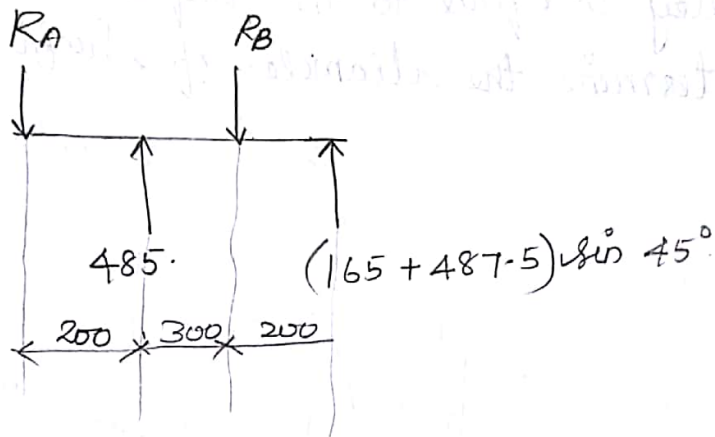 RA RB
485.
(165 + 487.5) sin 45°
200 300 200